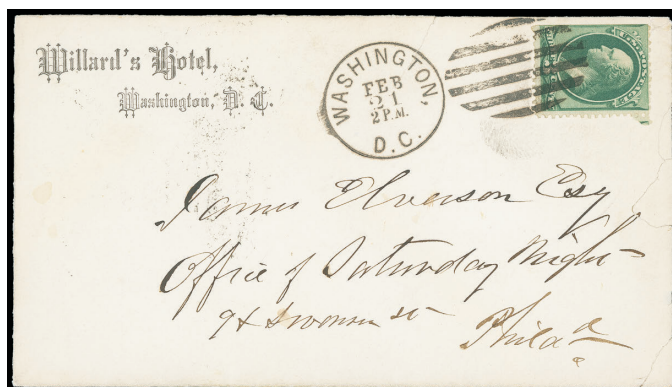 Willard's Hotel,
Washington, D. C.
WASHINGTON,
FEB
21
2 P.M.
D.C.
James Elverson Esq
Office of Saturday Night
Philad a